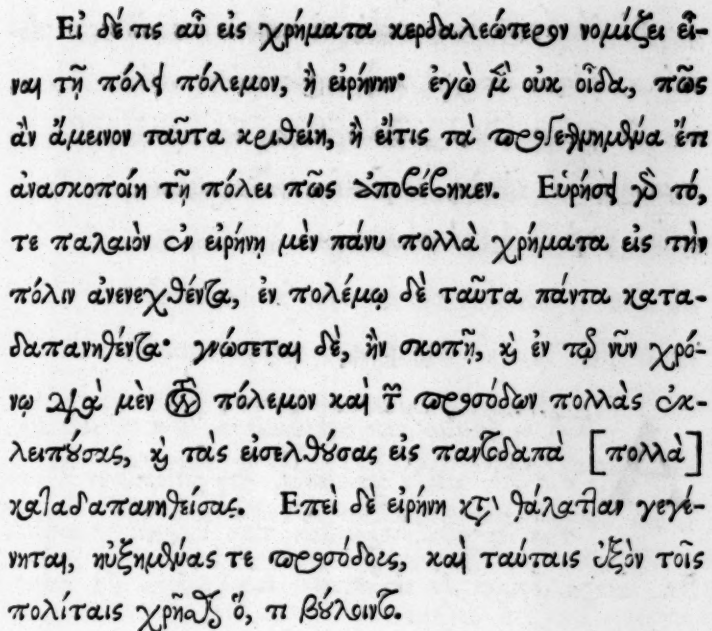 Εἰ δέ τις αὖ εἰς χρήματα κερδαλεώτερον νομίζει εἶ-
ναι τῇ πόλει πόλεμον, ἢ εἰρήνην· ἐγὼ μὲν οὐκ οἶδα, πῶς
ἂν ἄμεινον ταῦτα κριθείη, ἢ εἴτις τὰ προγεγενημένα ἔτι
ἀνασκοποίη τῇ πόλει πῶς ἀποβέβηκεν. Εὑρήσει γὰρ τό,
τε παλαιὸν ἐν εἰρήνῃ μὲν πάνυ πολλὰ χρήματα εἰς τὴν
πόλιν ἀνενεχθέντα, ἐν πολέμῳ δὲ ταῦτα πάντα κατα-
δαπανηθέντα· γνώσεται δέ, ἢν σκοπῇ, καὶ ἐν τῷ νῦν χρό-
νῳ διὰ μὲν τὸν πόλεμον καὶ τῶν προσόδων πολλὰς ἐκ-
λειπούσας, καὶ τὰς εἰσελθούσας εἰς παντοδαπὰ [πολλὰ]
καταδαπανηθείσας. Επεὶ δὲ εἰρήνη κατὰ θάλατταν γεγέ-
νηται, ηὐξημένας τε προσόδους, καὶ ταύταις ἐξὸν τοῖς
πολίταις χρῆσθαι ὅ, τι βούλοιντο.